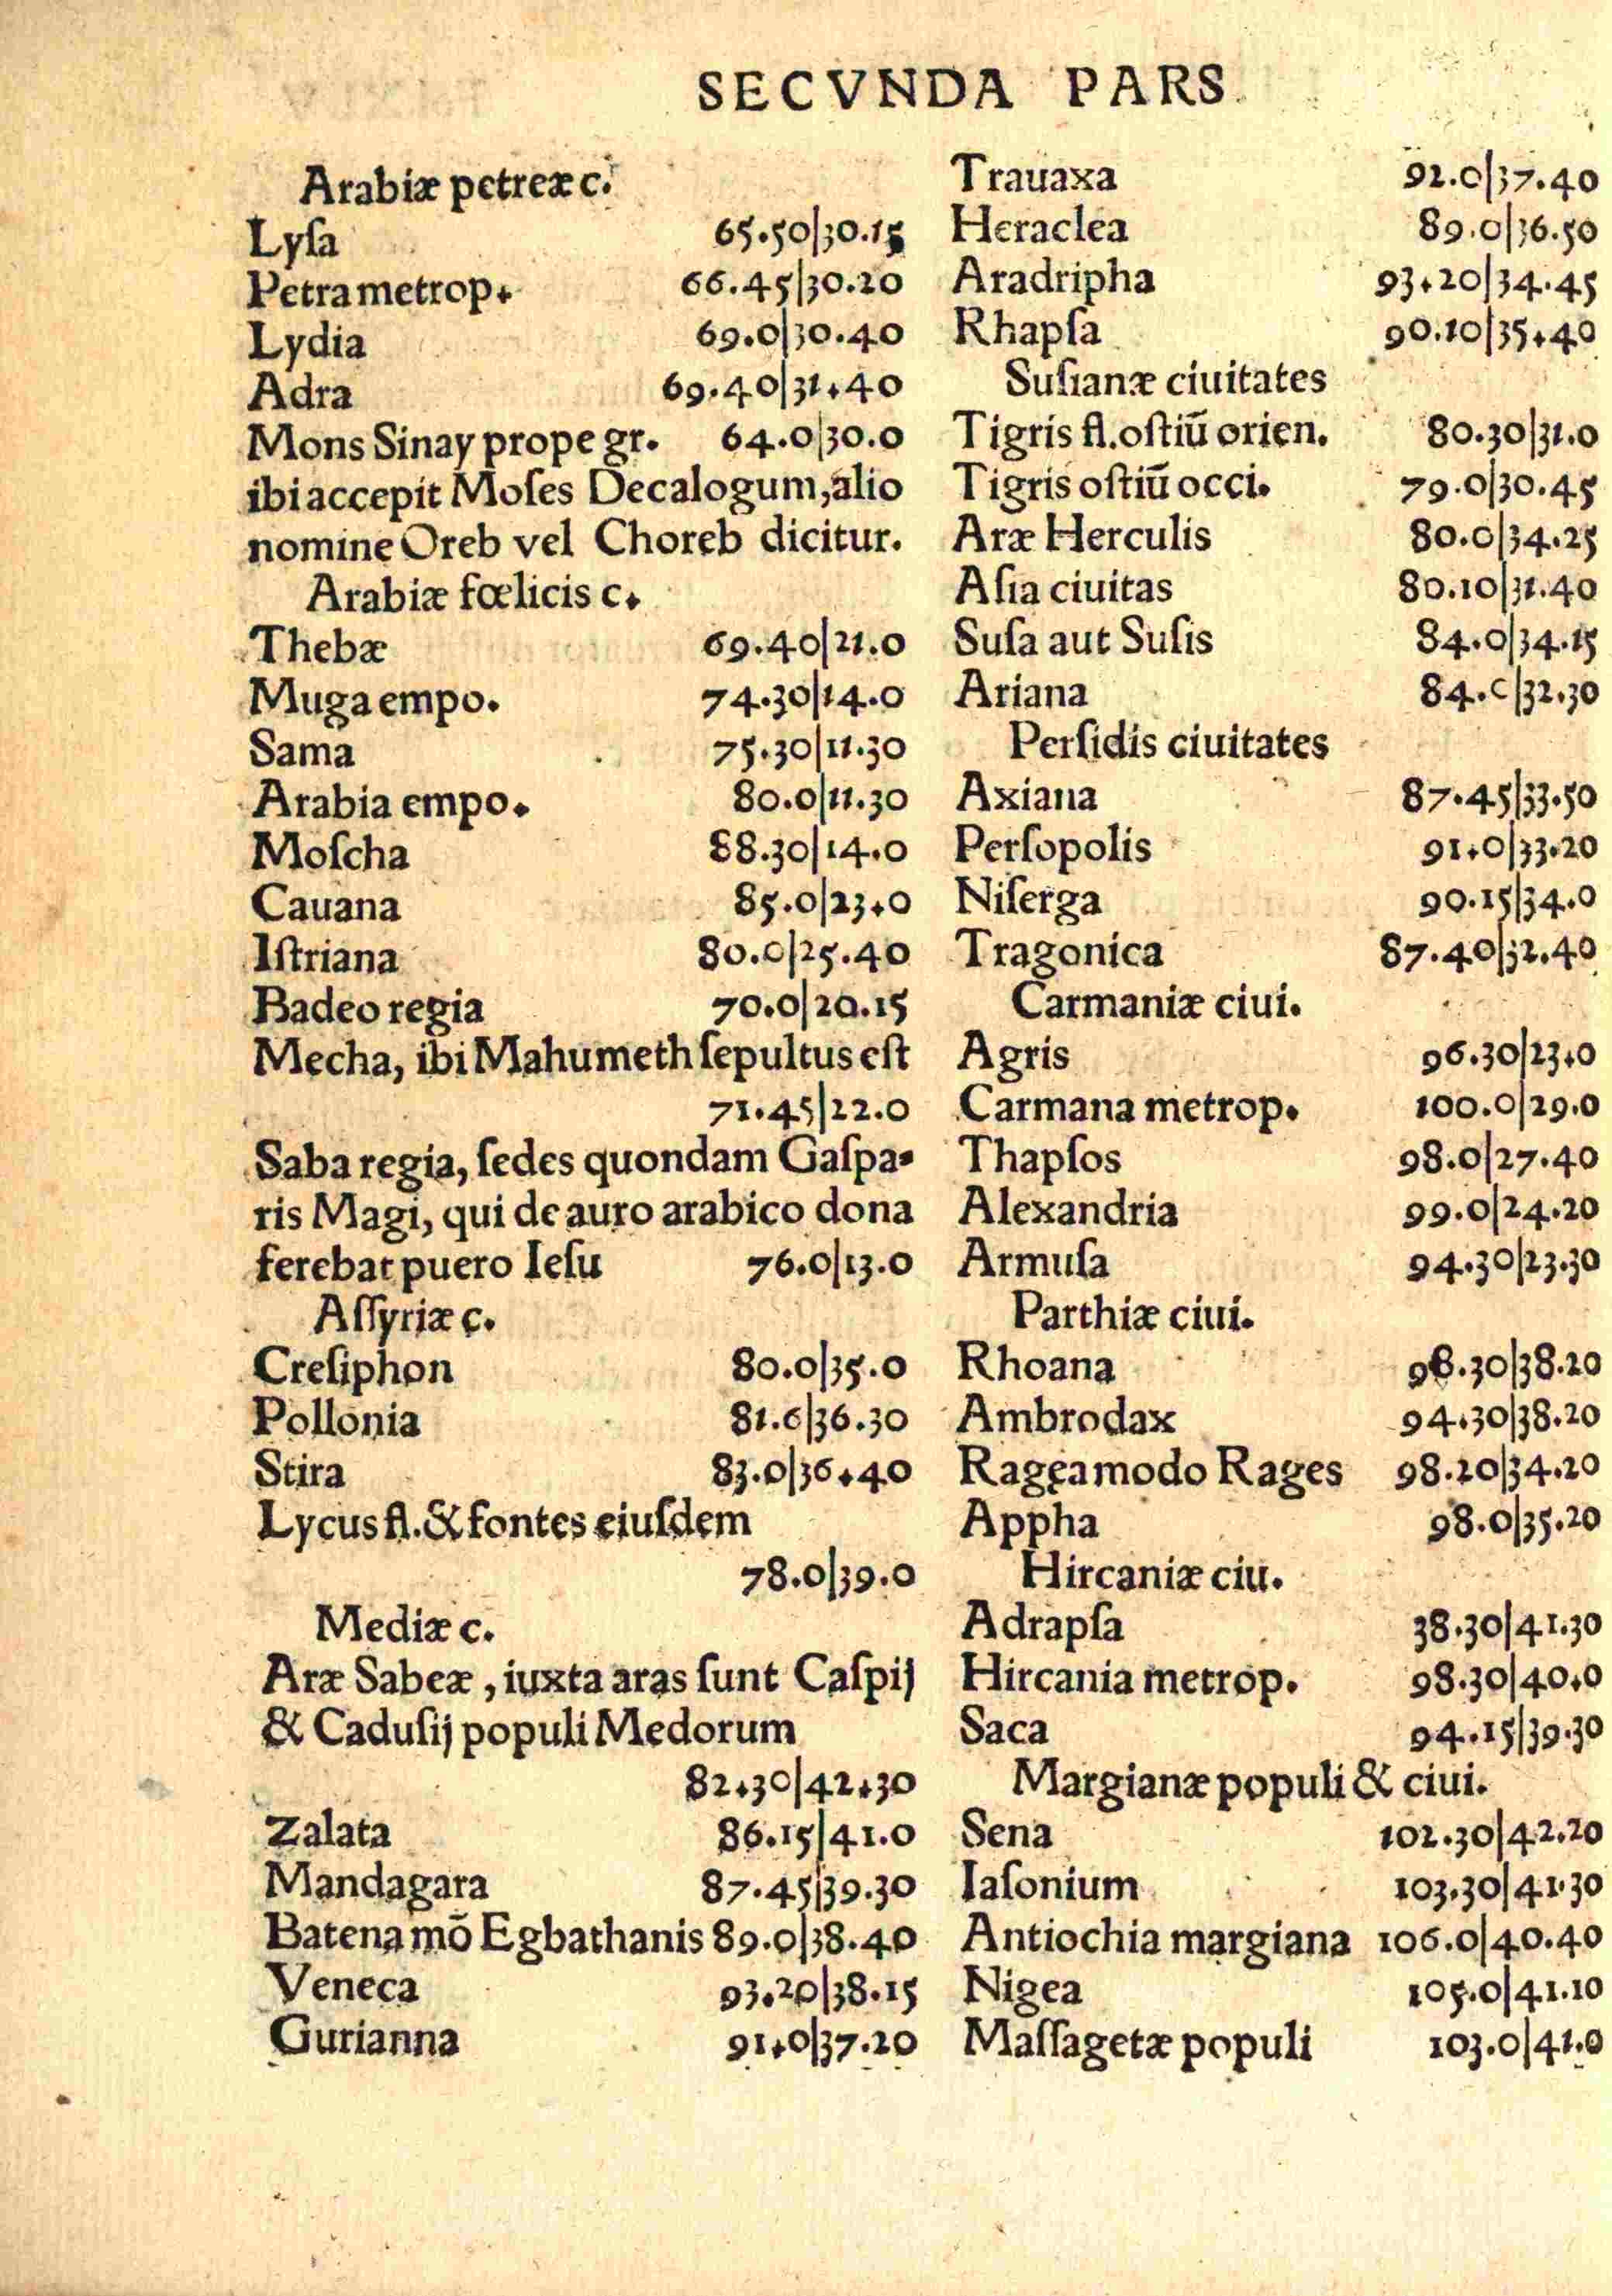 SECVNDA PARS
Arabiæ petreæ c.
Lyſa 65.50|30.15
Petra metrop. 66.45|30.20
Lydia 69.0|30.40
Adra 69.40|31.40
Mons Sinay prope gr. 64.0|30.0
ibi accepit Moſes Decalogum, alio
nomine Oreb vel Choreb dicitur.
Arabiæ fœlicis c.
Thebæ 69.40|21.0
Muga empo. 74.30|14.0
Sama 75.30|11.30
Arabia empo. 80.0|11.30
Moſcha 88.30|14.0
Cauana 85.0|23.0
Iſtriana 80.0|25.40
Badeo regia 70.0|20.15
Mecha, ibi Mahumeth ſepultus eſt
71.45|22.0
Saba regia, ſedes quondam Gaſpa-
ris Magi, qui de auro arabico dona
ferebat puero Ieſu 76.0|13.0
Aſſyriæ c.
Creſiphon 80.0|35.0
Pollonia 81.6|36.30
Stira 83.0|36.40
Lycus fl. & fontes eiuſdem
78.0|39.0
Mediæ c.
Aræ Sabeæ, iuxta aras ſunt Caſpij
& Caduſij populi Medorum
82.30|42.30
Zalata 86.15|41.0
Mandagara 87.45|39.30
Batena mō Egbathanis 89.0|38.40
Veneca 93.20|38.15
Gurianna 91.0|37.20
Trauaxa 92.0|37.40
Heraclea 89.0|36.50
Aradripha 93.20|34.45
Rhapſa 90.10|35.40
Suſianæ ciuitates
Tigris fl. oſtiū orien. 80.30|31.0
Tigris oſtiū occi. 79.0|30.45
Aræ Herculis 80.0|34.25
Aſia ciuitas 80.10|31.40
Suſa aut Suſis 84.0|34.15
Ariana 84.0|32.30
Perſidis ciuitates
Axiana 87.45|33.50
Perſopolis 91.0|33.20
Niſerga 90.15|34.0
Tragonica 87.40|32.40
Carmaniæ ciui.
Agris 96.30|23.0
Carmana metrop. 100.0|29.0
Thapſos 98.0|27.40
Alexandria 99.0|24.20
Armuſa 94.30|23.30
Parthiæ ciui.
Rhoana 98.30|38.20
Ambrodax 94.30|38.20
Ragęa modo Rages 98.20|34.20
Appha 98.0|35.20
Hircaniæ ciu.
Adrapſa 38.30|41.30
Hircania metrop. 98.30|40.0
Saca 94.15|39.30
Margianæ populi & ciui.
Sena 102.30|42.20
Iaſonium 103.30|41.30
Antiochia margiana 106.0|40.40
Nigea 105.0|41.10
Maſſagetæ populi 103.0|41.0